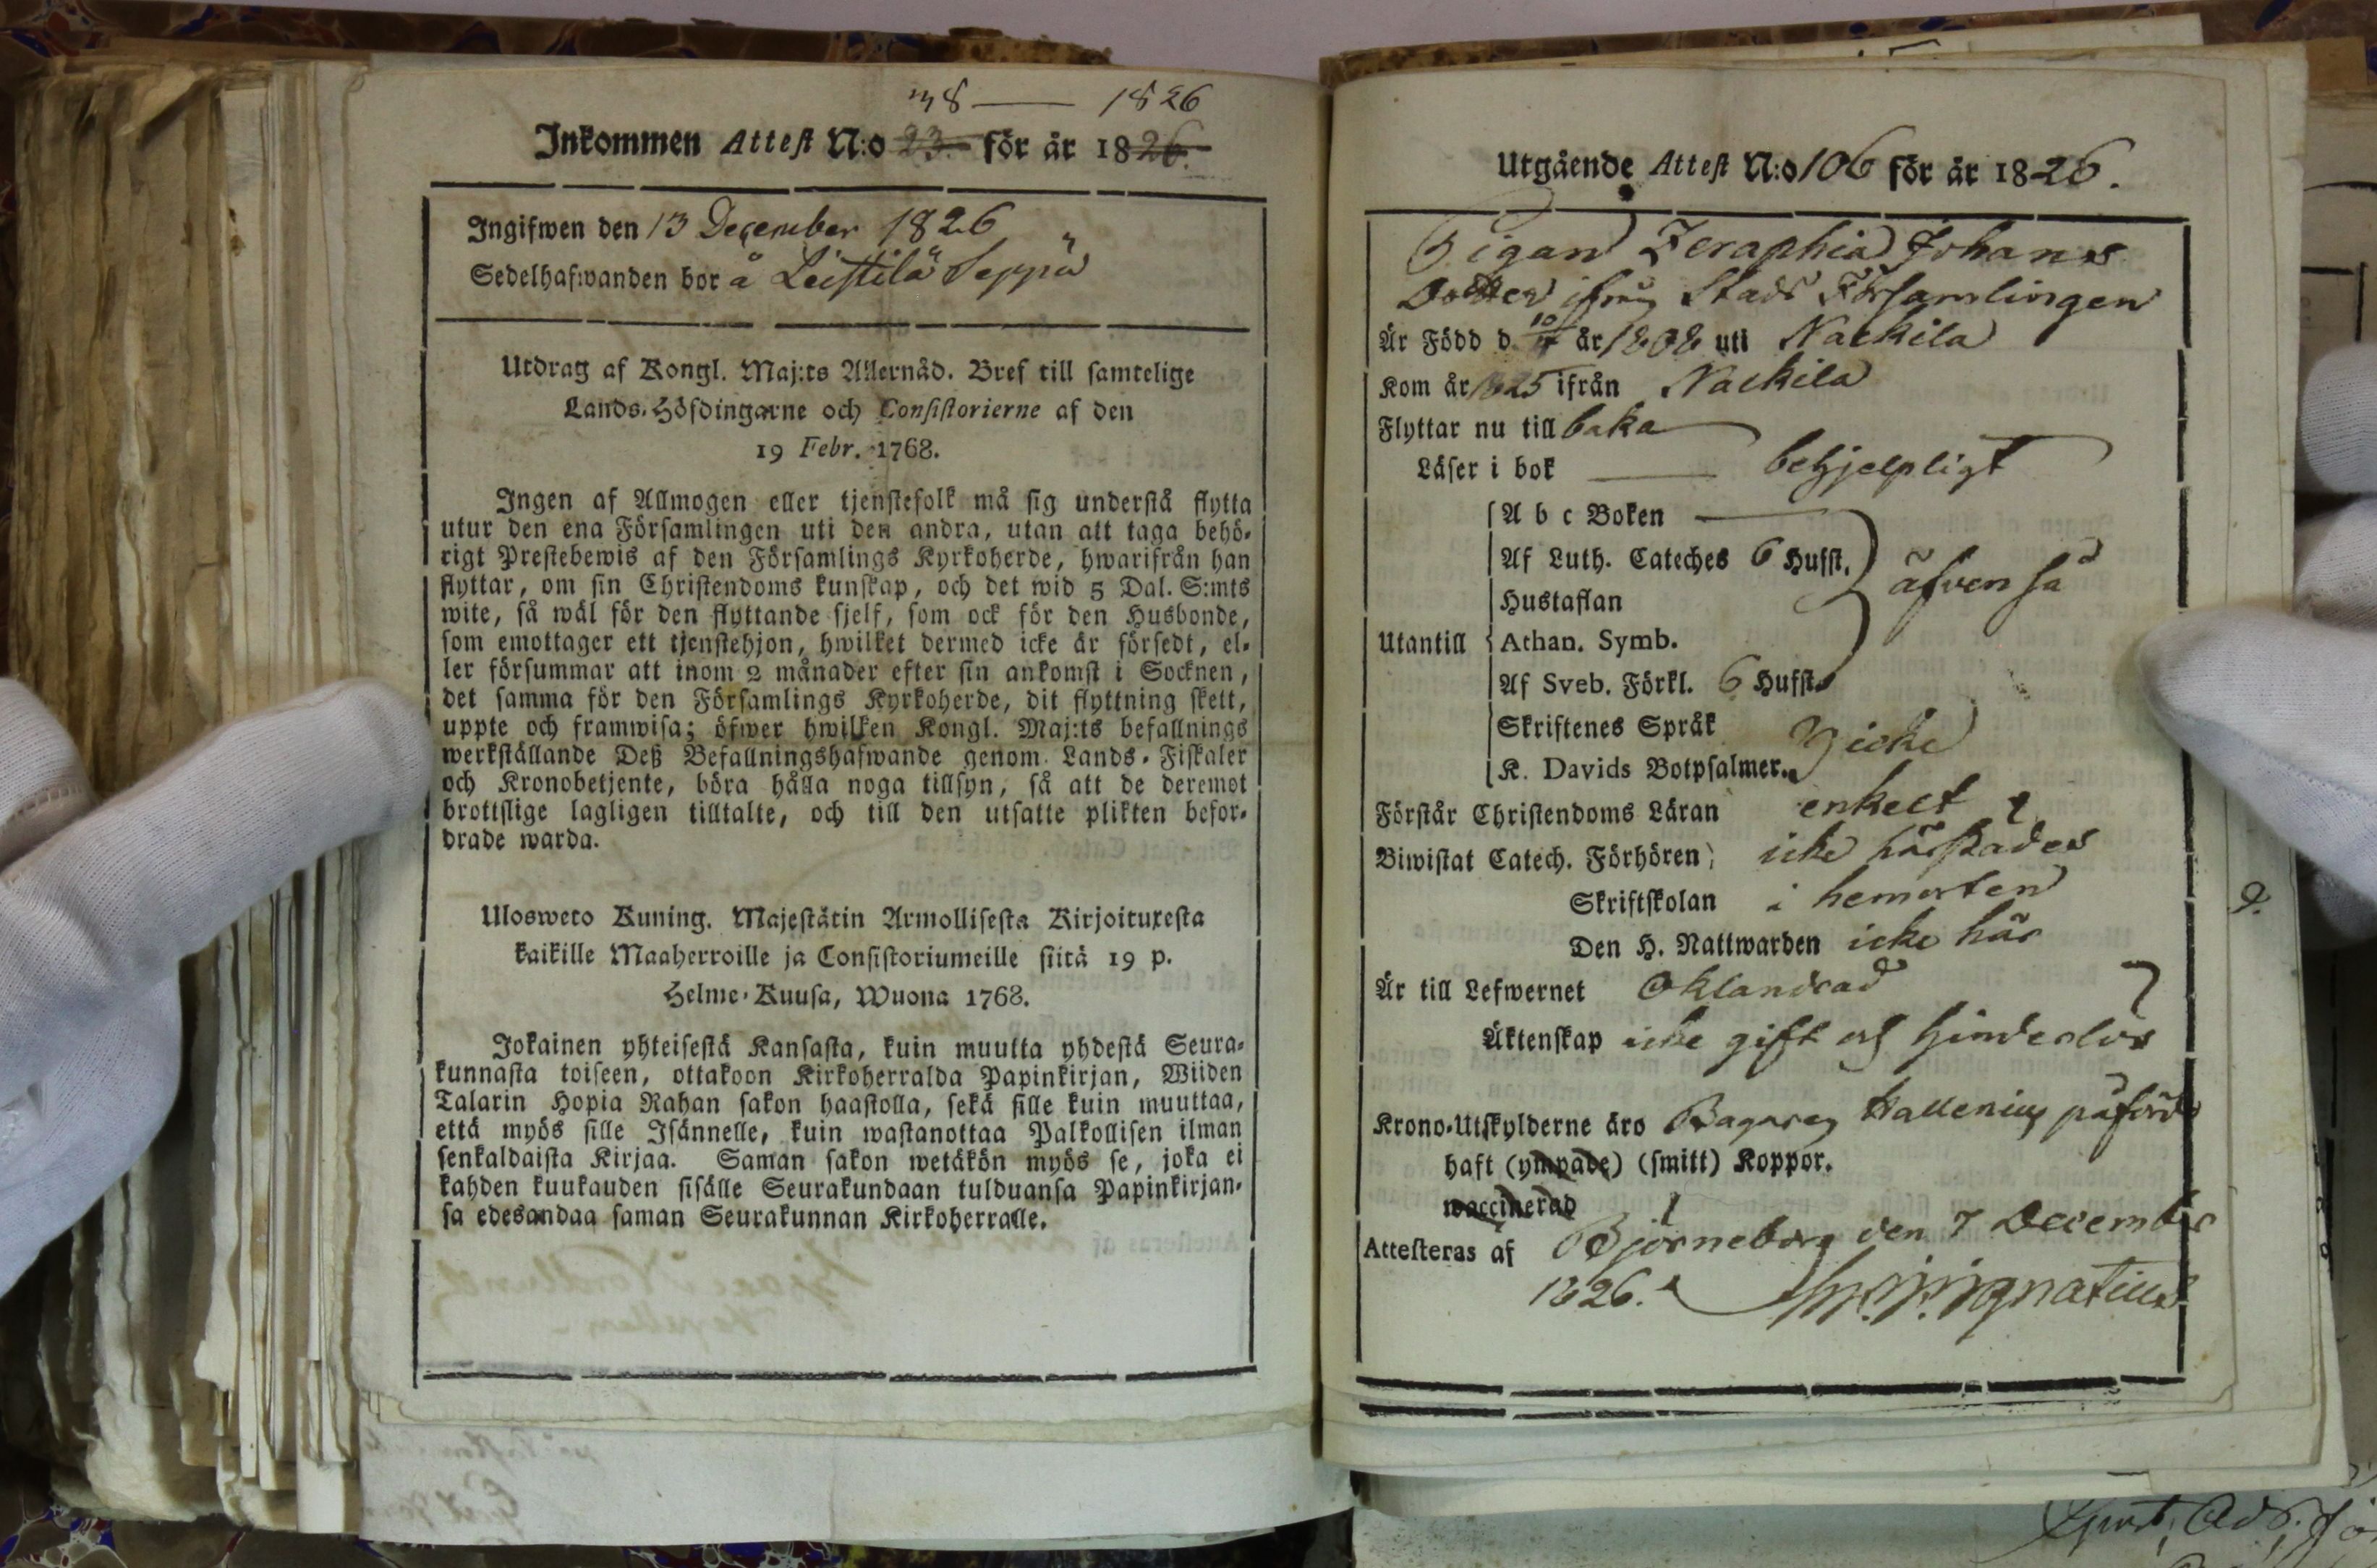 38 — 1826
Inkommen Attest N:o 23. för år 1826.
Ingifwen den 13 December 1826
Sedelhafwanden bor å Leistilä Seppä
Utdrag af Kongl. Maj:ts Allernåd. Bref till samtelige
Lands-Höfdingarne och Consistorierne af den
19 Febr. 1768.
Ingen af Allmogen eller tjenstefolk må sig understå flytta
utur den ena Församlingen uti den andra, utan att taga behö-
rigt Prestebewis af den Församlings Kyrkoherde, hwarifrån han
flyttar, om sin Christendoms kunskap, och det wid 5 Dal. S:mts
wite, så wäl för den flyttande sjelf, som ock för den Husbonde,
som emottager ett tjenstehjon, hwilket dermed icke är försedt, el-
ler försummar att inom 2 månader efter sin ankomst i Socknen,
det samma för den Församlings Kyrkoherde, dit flyttning skett,
uppte och framwisa; öfwer hwilken Kongl. Maj:ts befallnings
werkställande Deß Befallningshafwande genom Lands-Fiskaler
och Kronobetjente, böra hålla noga tillsyn, så att de deremot
brottslige lagligen tilltalte, och till den utsatte plikten befor-
drade warda.
Ulosweto Kuning. Majestätin Armollisesta Kirjoituxesta
kaikille Maaherroille ja Consistoriumeille siitä 19 p.
Helme-Kuusa, Wuona 1768.
Jokainen yhteisestä Kansasta, kuin muutta yhdestä Seura-
kunnasta toiseen, ottakoon Kirkoherralda Papinkirjan, Wiiden
Talarin Hopia Rahan sakon haastolla, sekä sille kuin muuttaa,
että myös sille Isännelle, kuin wastanottaa Palkollisen ilman
senkaldaista Kirjaa. Saman sakon wetäkön myös se, joka ei
kahden kuukauden sisälle Seurakundaan tulduansa Papinkirjan-
sa edesandaa saman Seurakunnan Kirkoherralle.
Utgående Attest N:o 106 för år 1826.
Pigan Seraphia Johans
Dotter ifrån Stads Församlingen
Är Född d. 10 år 1808 uti Nackila
Kom år 1825 ifrån Nackila
Flyttar nu till baka
Läser i bok — behjelpligt
A b c Boken
Af Luth. Cateches 6 Hufst. äfven så
Hustaflan
Utantill Athan. Symb.
Af Sveb. Förkl. 6 Hufst.
Skriftenes Språk
K. Davids Botpsalmer. icke
Förstår Christendoms Läran enkelt
Biwistat Catech. Förhören icke härstädes
Skriftskolan i hemorten
Den H. Nattwarden icke här
Är till Lefwernet Oklandrad
Äktenskap icke gift och hinderlös
Krono-Utskylderne äro Hallenius påförde
haft (ympade) (smitt) Koppor.
waccinerad
Attesteras af Björneborg den 7 December
1826. Ignatius